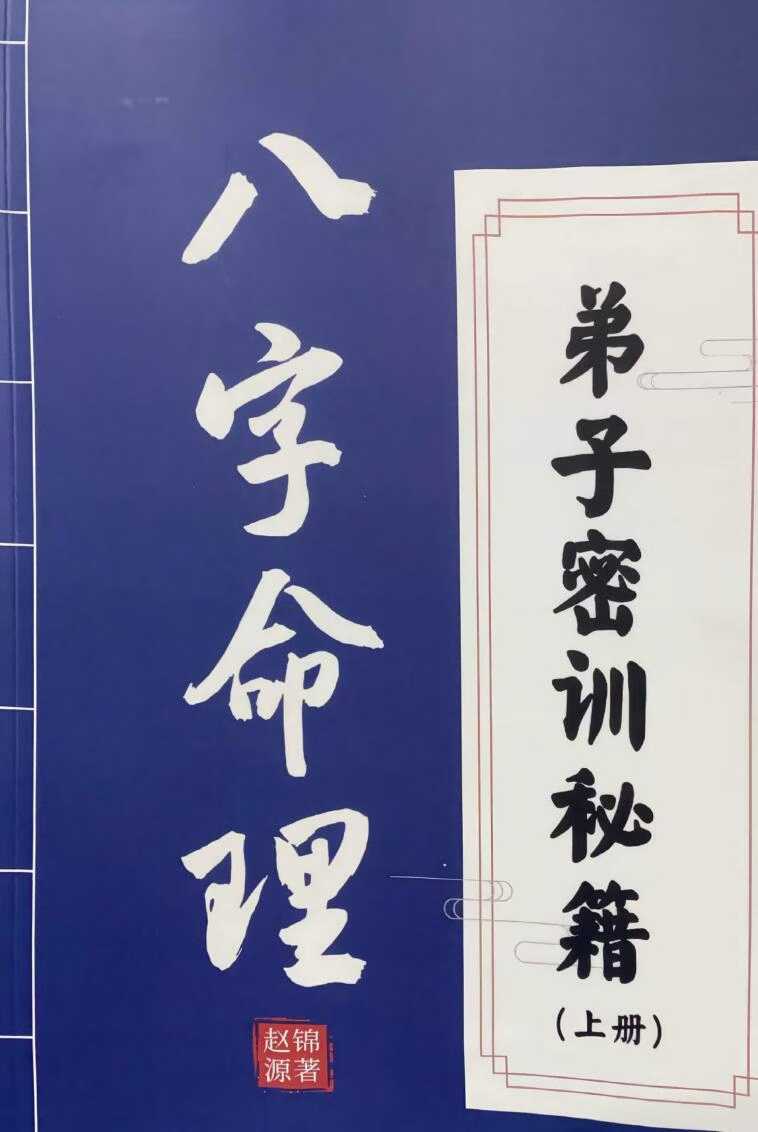 八字命理
弟子密训秘籍
（上册）
赵锦
源著